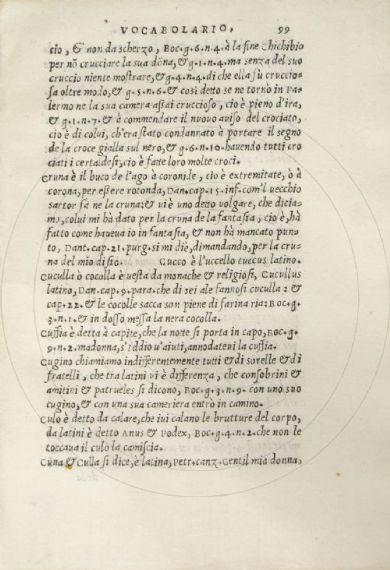 VOCABOLARIO, 99
cio, & non da scherzo, Boc.g.6.n.4. à la fine Chichibio
per nõ crucciare la sua dõna, & g.1.n.4. ma senza del suo
cruccio niente mostrare, & g.4.n.4. di che ella fù cruccio-
sa oltre modo, & g.5.n.6. & così detto se ne torno in Pa
lermo ne la sua camera assai cruccioso, cio è pieno d'ira,
& g.1.n.7. & è commendare il nuovo aviso del crociato,
cio è di colui, ch'era stato condannato à portare il segno
de la croce gialla sul nero, & g.6.n.10. havendo tutti cro
ciati i certaldesi, cio è fatte loro molte croci.
Cruna è il buco de l'ago à coronile, cio è extremitate, ò à
corona, per essere rotonda, Dan.cap.15.inf.com'l vecchio
sartor fà ne la cruna; & vi è uno detto volgare, che dicia-
mo, colui mi hà dato per la cruna de la fantasia, cio è, hà
fatto come haueua io in fantasia, & non hà mancato pun-
to, Dant.cap.21.purg.si mi diè, dimandando, per la cru-
na del mio disio. Cucco è l'uccello cuccus latino.
Cuculla ò cocolla è vesta da monache & religiosi, Cucullus
latino, Dan.cap.9.para.che di sei ale fannosi cuculla: &
cap.22. & le cocolle sacca son piene di farina ria: Boc.g.
3.n.1. & in dosso messa la nera cocolla.
Cuffia è detta à capite, che la notte si porta in capo, Boc.g.
9.n.2. madonna, s'Iddio u'aiuti, annodatevi la cuffia.
Cugino chiamiamo indifferentemente tutti & di sorelle & di
fratelli, che tra latini vi è differenza, che consobrini &
amitini & patrueles si dicono, Boc.g.3.n.9. con uno suo
cugino, & con una sua cameriera entrò in camino.
Culo è detto da calare, che ivi calano le brutture del corpo,
da latini è detto Anus & Podex, Boc.g.4.n.2. che non le
toccava il culo la camiscia.
Cuna & Culla si dice, è latina, Petr.canz.Gentil mia donna,